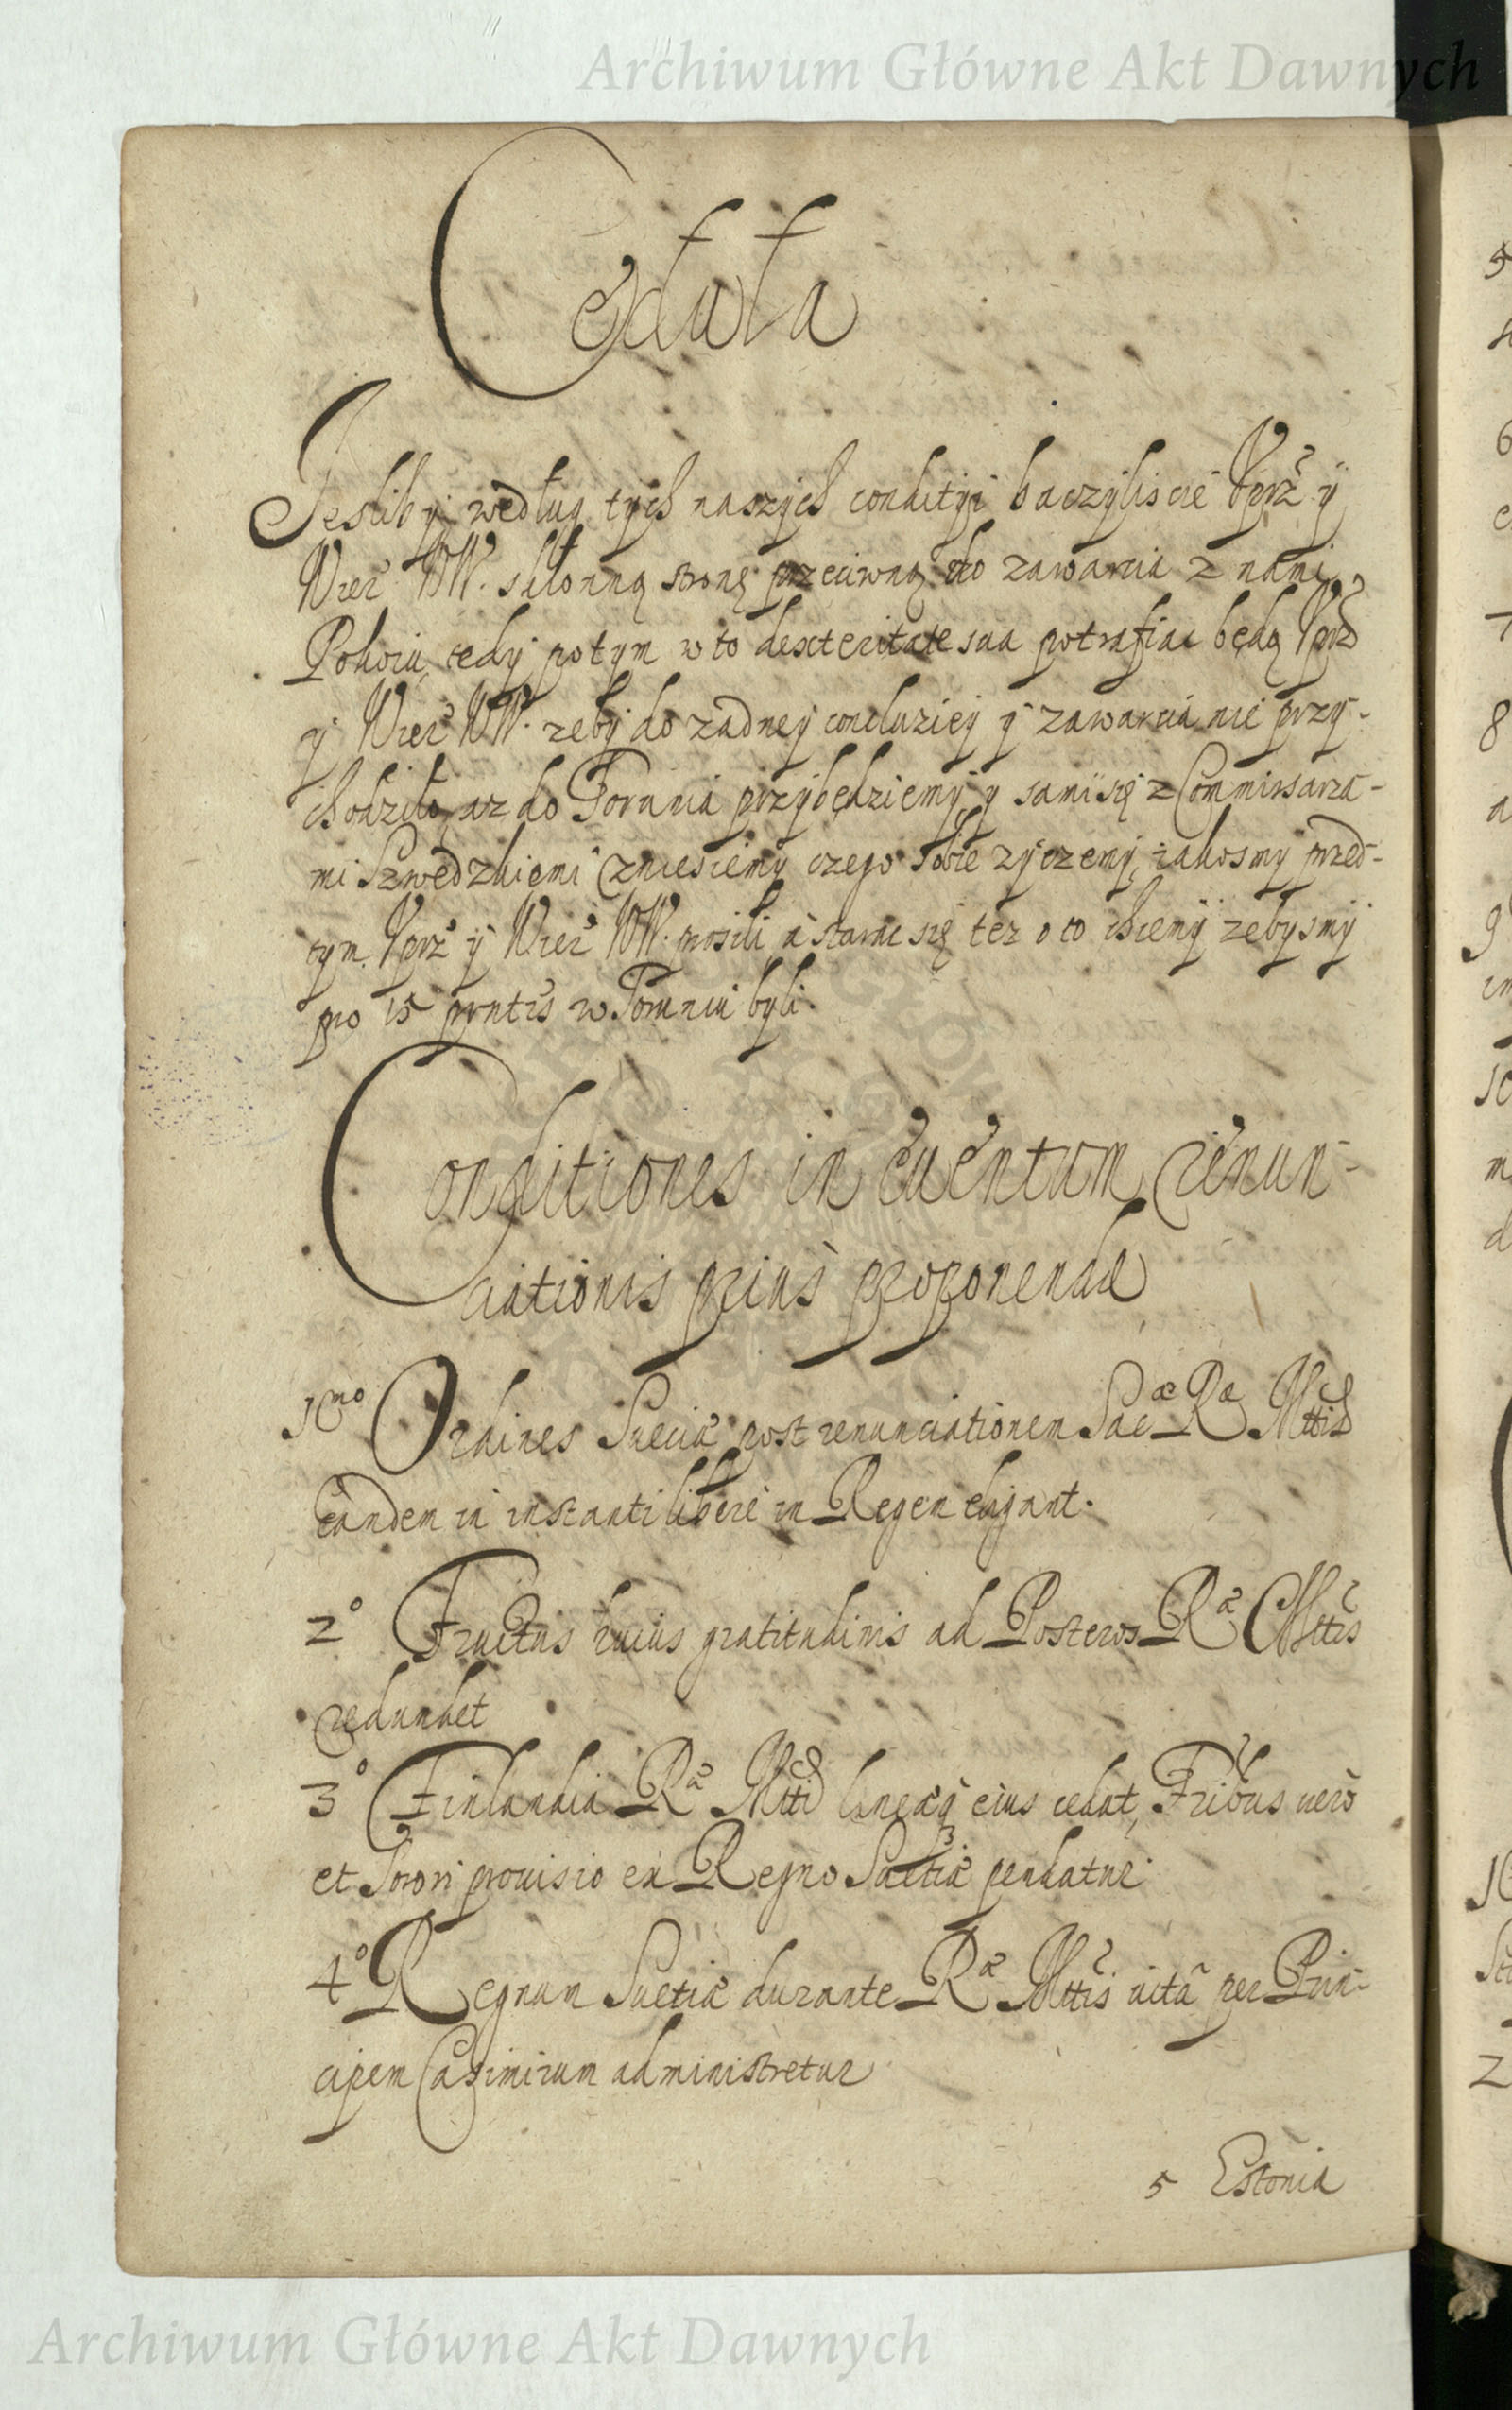 Archiwum Główne Akt Dawnych
Ceduła
Jesliby według tych naszych conditÿi baczÿliscie Vprź ÿ
Wier̃ WW. skłonną stronę przeciwną do zawarcia z nami
Pokoiu, tedy potym w to dexteritate sua potrafiac będą Vprź
ÿ Wier̃ WW. zeby do zadneÿ concluzieÿ ÿ zawarcia nie przy-
chodziło, az do Torunia przÿbędziemÿ, ÿ sami się z Commissarza-
mi Szwedzkiemi zniesiemÿ czego sobie zÿczemÿ, iakosmÿ przed-
tym Vprź ÿ Wier̃ WW. prosili à starac się tez o to chcemÿ zebysmÿ
pro 15 prntis w Toruniu byli.
Conditiones in euentum renun-
ciationis prius proponendæ
1mo Ordines Sueciæ post renunciationem Sacæ Ræ Mttis
eandem in instanti liberè in Regem eligant.
2º Fructus huius gratitudinis ad Posteros Ræ Mttis
redundet
3º Finlandia Ræ Mtti lineæq̃ eius cedat, Fribus uerò
et Sorori prouisio ex Regno Suetiæ pendatur.
4º Regnum Suetiæ durante Ræ Mttis uitâ per Prin-
cipem Casimirum administretur
5 Estonia
Archiwum Główne Akt Dawnych